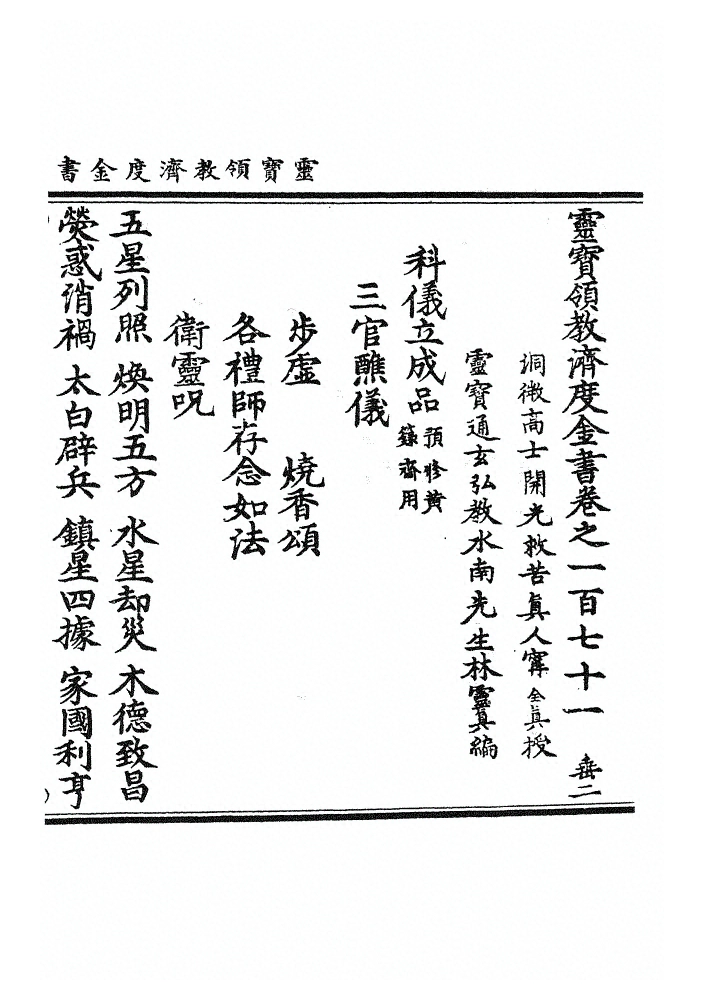 靈寶領教濟度金書
靈寶領教濟度金書卷之一百七十一　壵二
洞微高士開光救苦眞人寗全眞授
靈寶通玄弘教水南先生林靈眞編
科儀立成品預修黄
籙齋用
三官醮儀
步虛　燒香頌
各禮師存念如法
衛靈呪
五星列照　煥明五方　水星却災　木德致昌
熒惑消禍　太白辟兵　鎮星四據　家國利亨